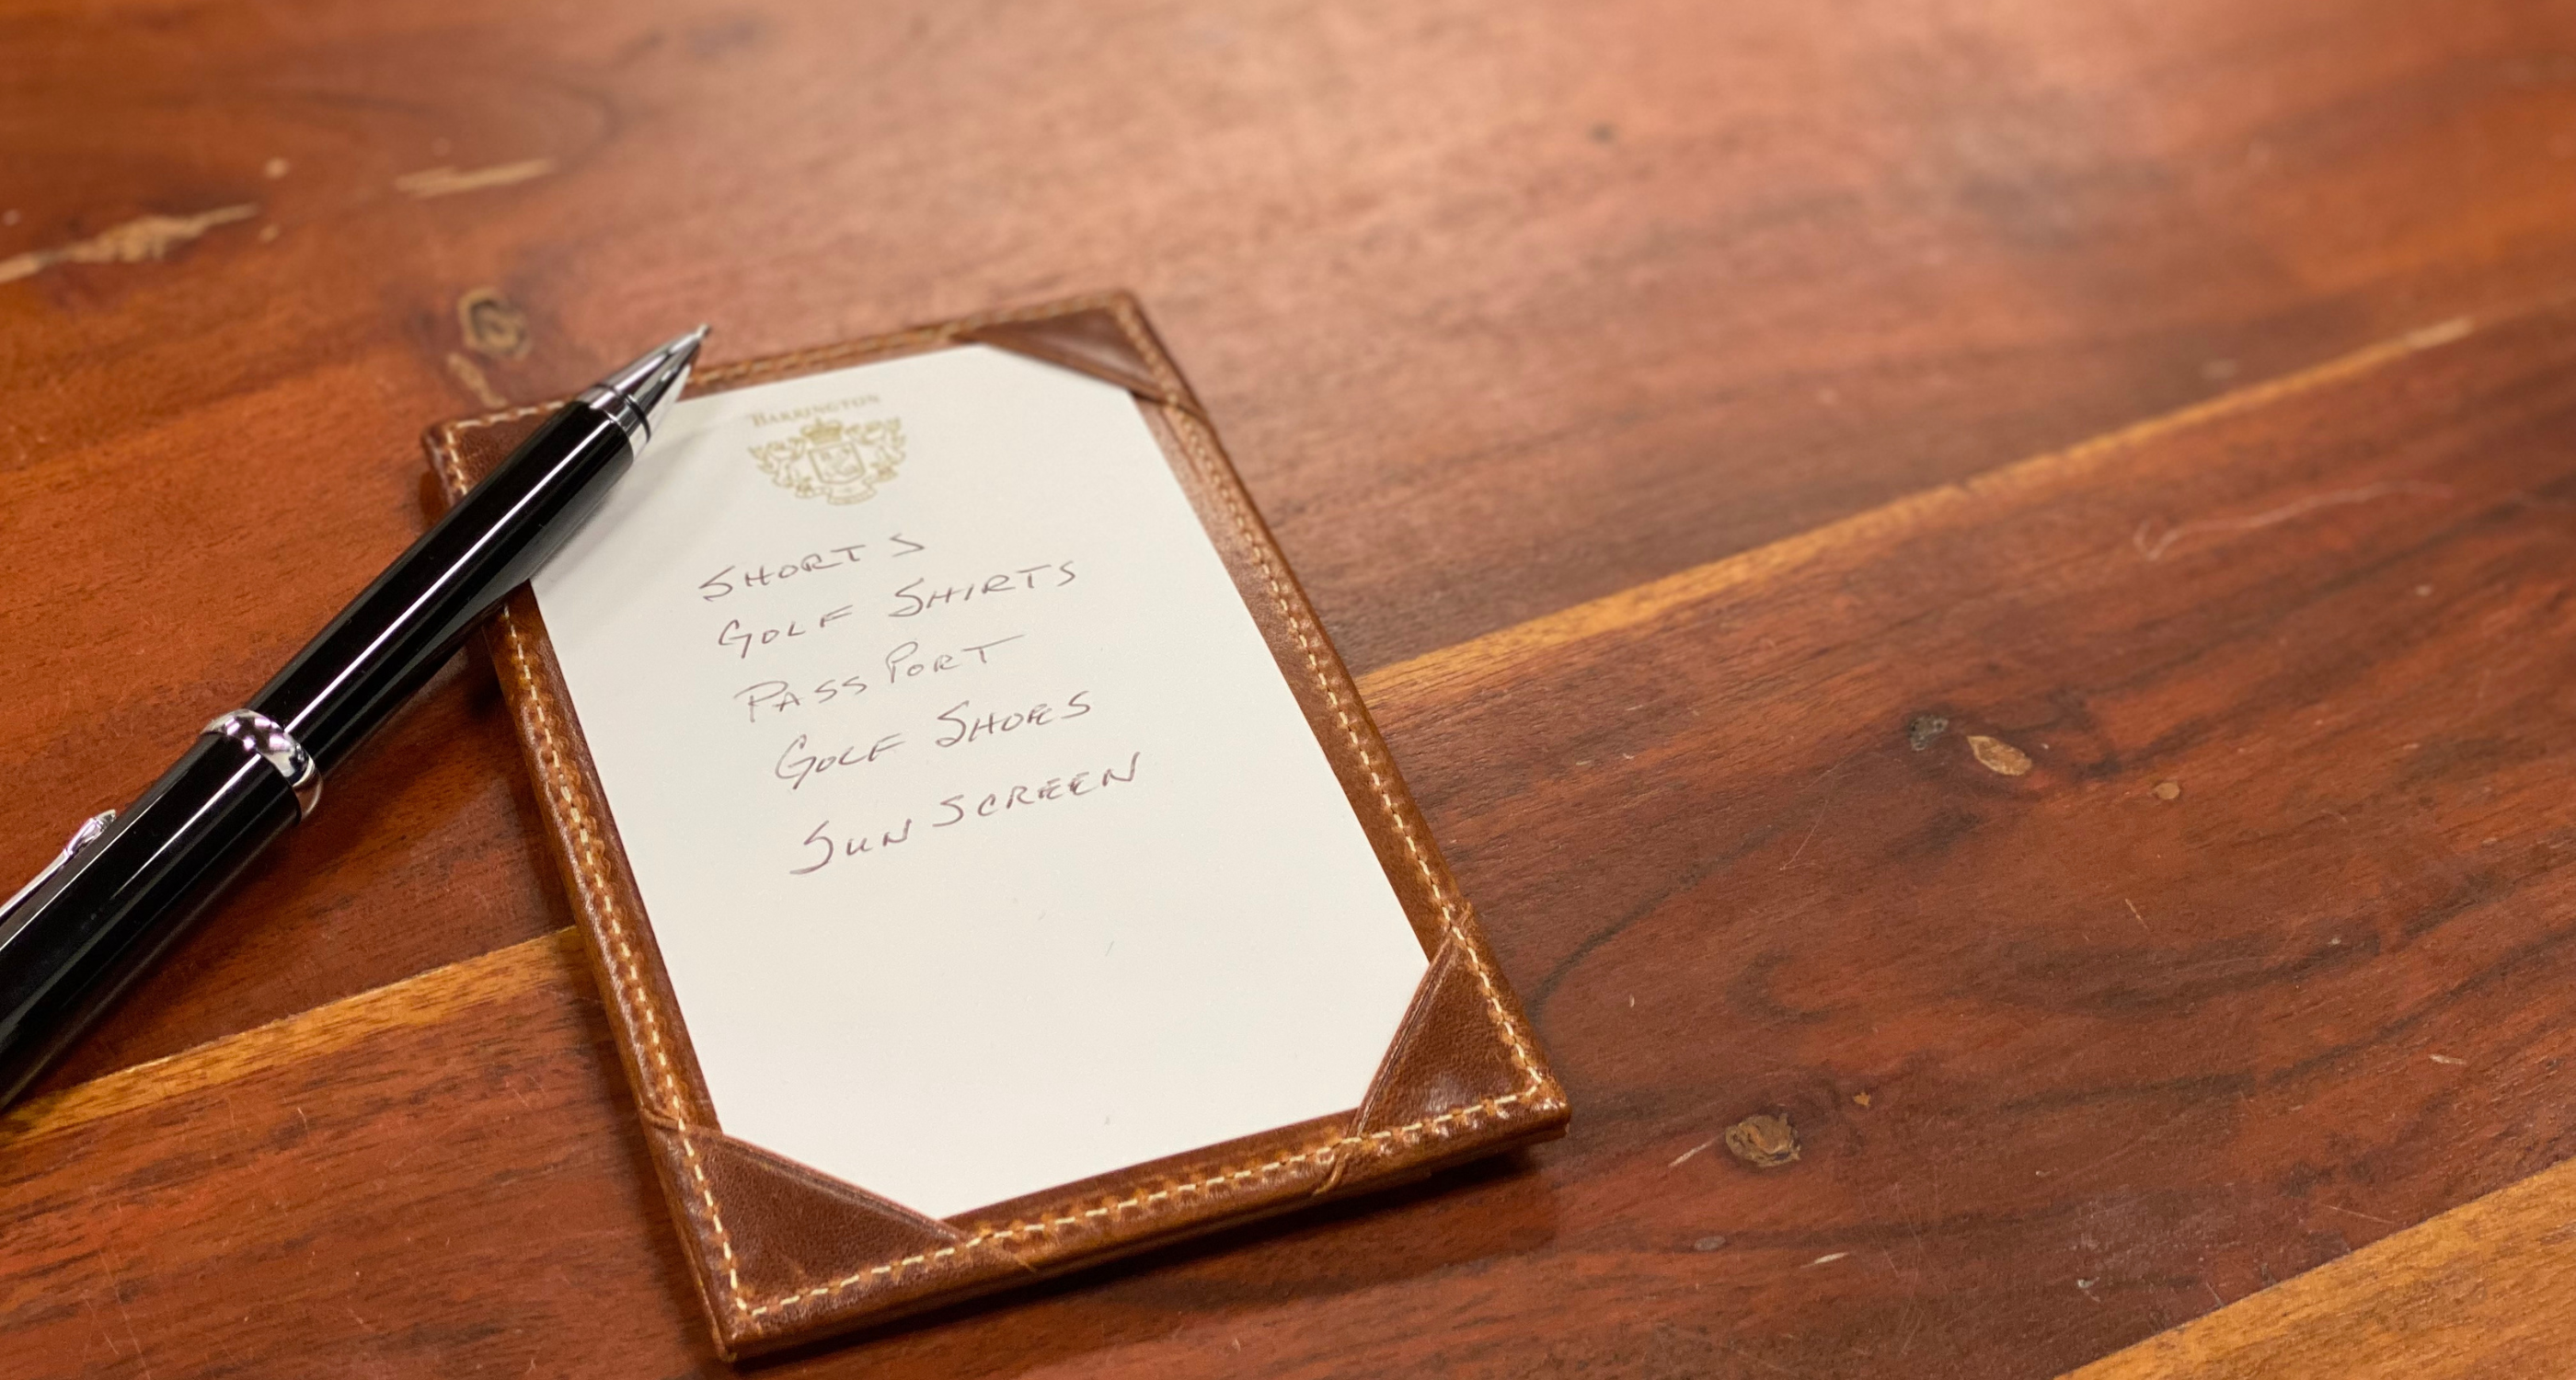 BARRINGTON
SHORTS
GOLF SHIRTS
PASSPORT
GOLF SHOES
SUN SCREEN